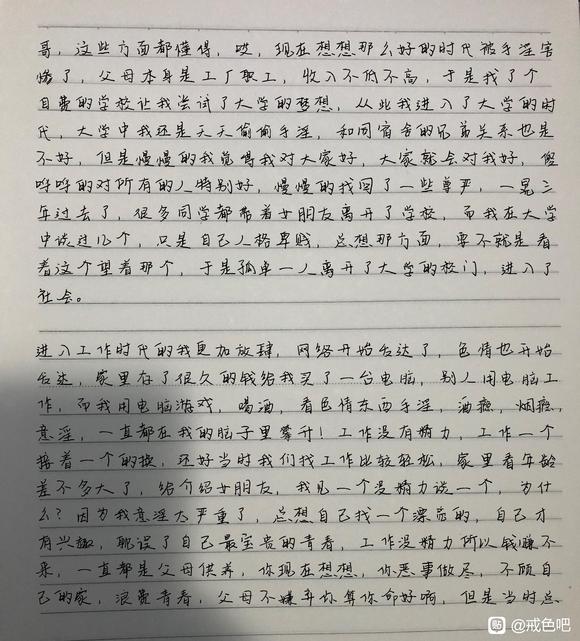 哥，这些方面都懂得，哎，现在想想那么好的时代被手淫害
惨了，父母本身是工厂职工，收入不低不高，于是找了个
自费的学校让我尝试了大学的梦想，从此我进入了大学的时
代，大学中我还是天天偷偷手淫，和同宿舍的兄弟关系也是
不好，但是慢慢的我觉得我对大家好，大家就会对我好，傻
哔哔的对所有的人特别好，慢慢的找回了一些尊严，一晃三
年过去了，很多同学都带着女朋友离开了学校，而我在大学
中谈过几个，只是自己人格卑贱，总想那方面，要不就是看
着这个望着那个，于是孤单一人离开了大学的校门，进入了
社会。
进入工作时代的我更加放肆，网络开始发达了，色情也开始
发达，家里存了很久的钱给我买了一台电脑，别人用电脑工
作，而我用电脑游戏，喝酒，看色情东西手淫，酒瘾，烟瘾，
意淫，一直都在我的脑子里攀升！工作没有精力，工作一个
接着一个的换，还好当时我们找工作比较轻松，家里看年龄
差不多大了，给介绍女朋友，我见一个没精力谈一个，为什
么？因为我意淫太严重了，总想自己找一个漂亮的，自己才
有兴趣，耽误了自己最宝贵的青春，工作没精力所以钱赚不
来，一直都是父母供养，你现在想想，你恶事做尽，不顾自
己的家，浪费青春，父母不嫌弃你算你命好啊，但是当时总
贴 @戒色吧